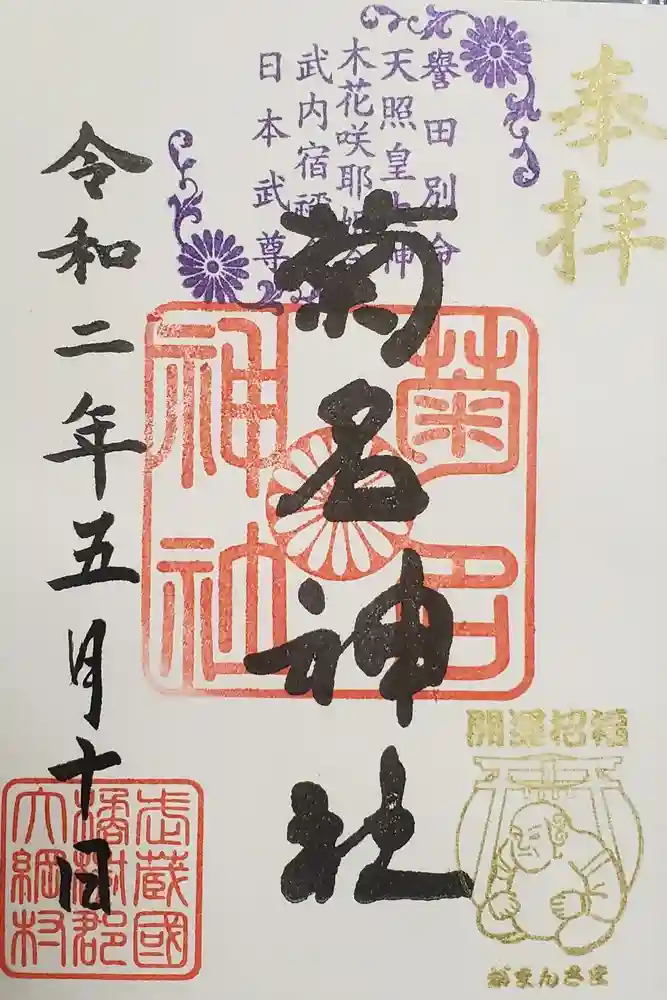 奉拝
譽田別命
天照皇大神
木花咲耶姫命
武内宿禰
日本武尊
菊名神社
菊名
神社
令和二年五月十日
武蔵國
橘樹郡
大綱村
開運招福
がまんさま